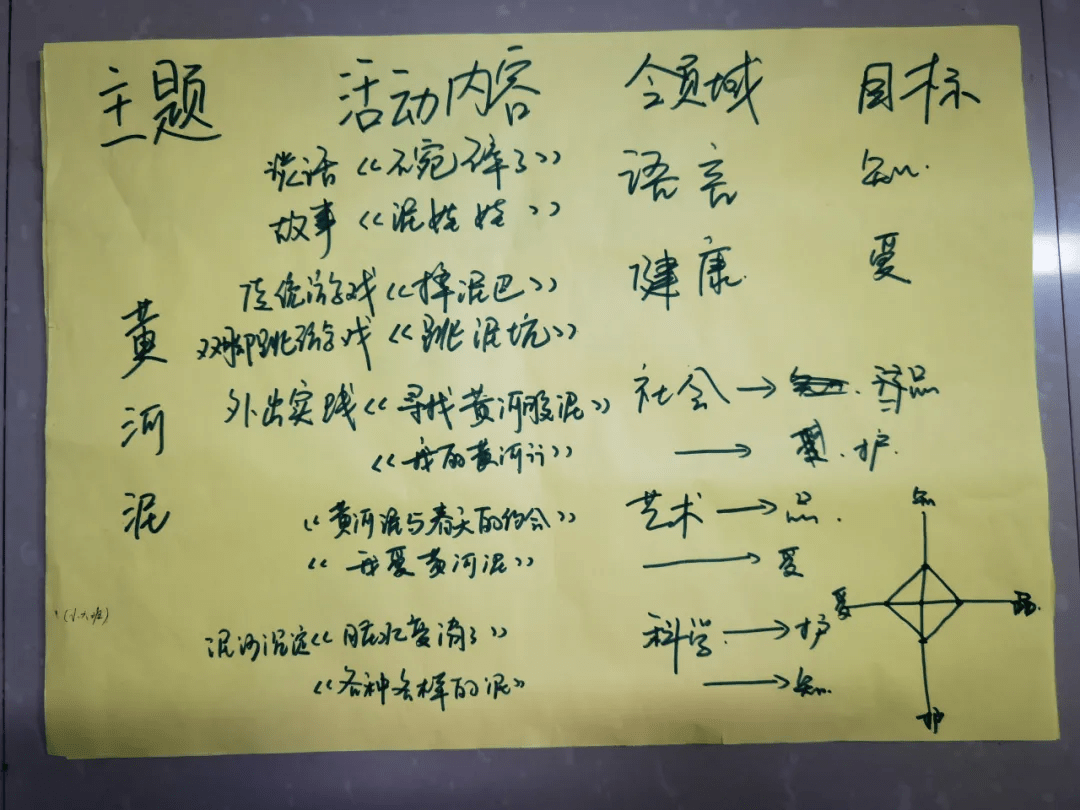 主题 活动内容 领域 目标
谈话《不碗碎了》 语言 知.
故事《泥娃娃》
传统游戏《摔泥巴》 健康 爱
双脚跳游戏《跳泥坑》
外出实践《寻找黄河胶泥》 社会→ 品
《我的黄河 》 → 爱.护
黄河泥
《黄河泥与春天的约会》 艺术→品.
《我爱黄河泥》 →爱
(小六班)
泥沙沉淀《脏水变清了》 科学→护
《各种各样的泥》 →知.
知
爱 品.
护